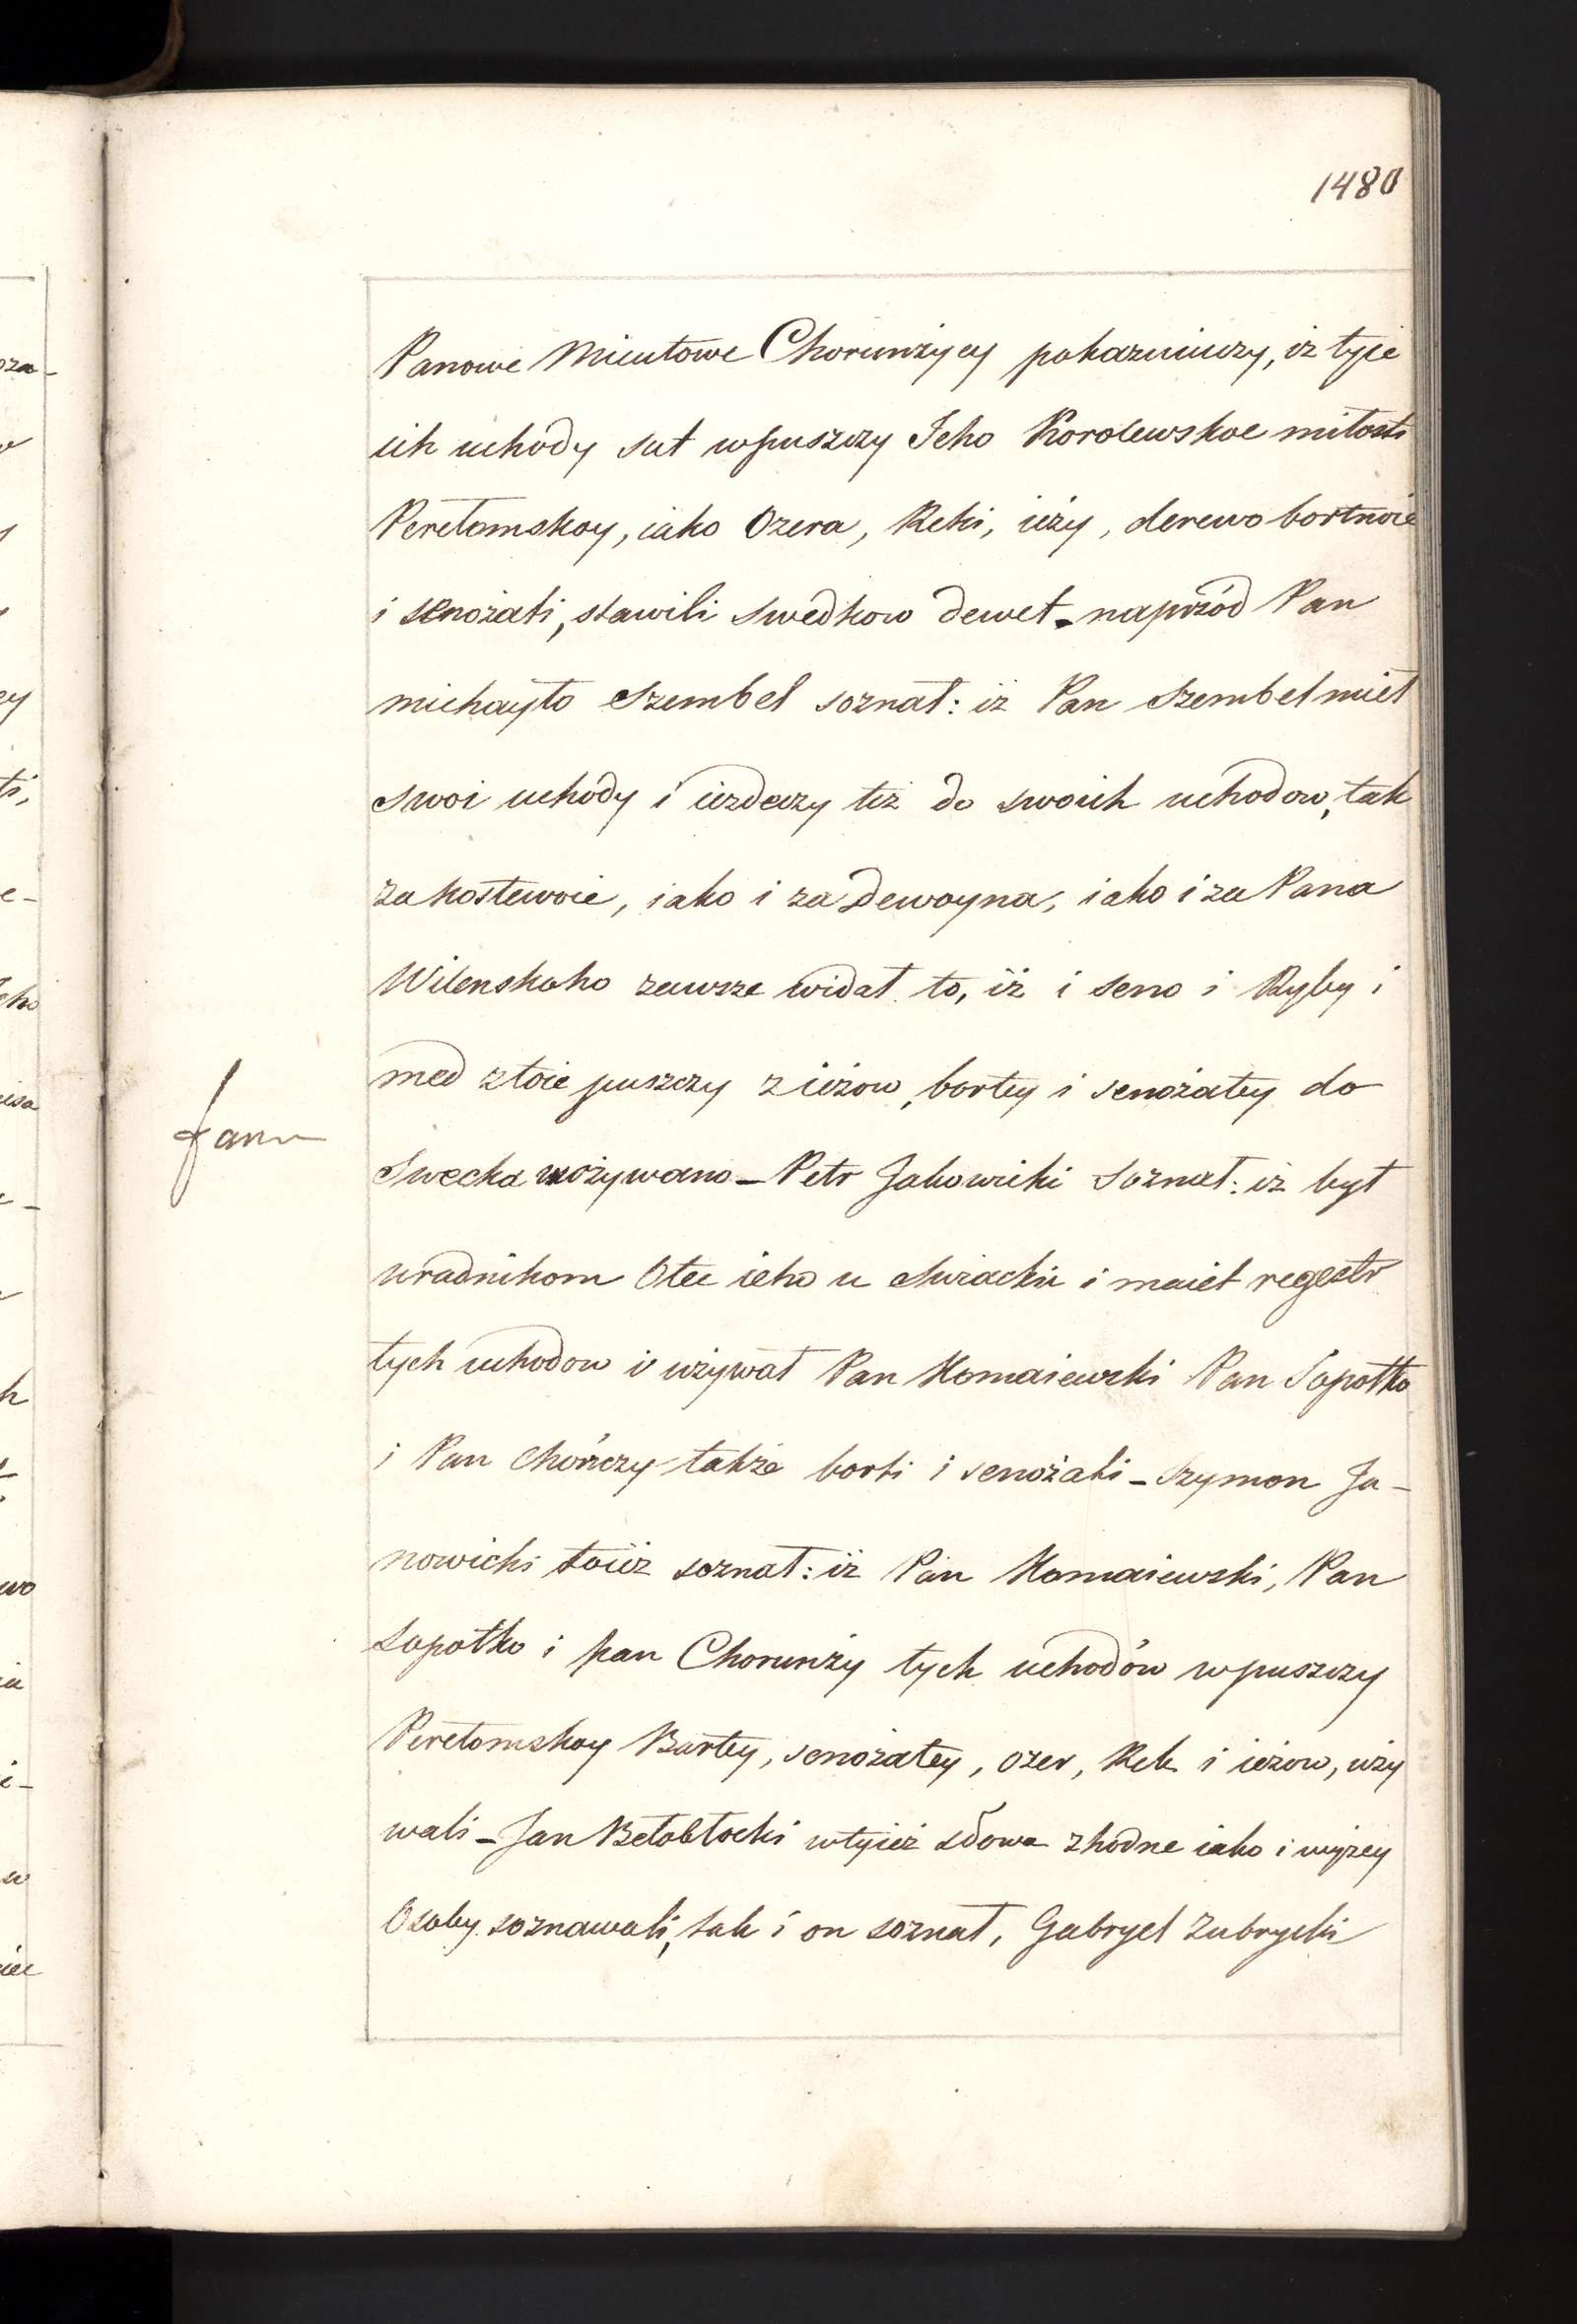 1480
Panowe Micutowe Chorunżycy pokazuiuczy, iż tyie
ich uchody sut wpuszczy Jeho Korolewskoe miłosti
Perełomskoy, iako Ozera, Reki, ieży, derewo bortnoie
i senożati, stawili swedkow dewet - naprzód Pan
michayło Szembel soznał: iż Pan Szembel mieł
swoi uchody i iezdeczy też do swoich uchodow, tak
za kostewoie, iako i za Dewoyna, iako i za Pana
Wilenskoho zawsze widał to, iż i seno i Ryby i
med ztoie puszczy z ieżow, bortey i senożatey do
Swecka wożywano - Petr Jakowicki soznał: iż był
uradnikom Otec ieho u Swiacku i maiet regestr
tych uchodow i używał Pan Homaiewski Pan Sopotko
i Pan Chorży także borti i senożati - Szymon Ja-
nowicki toież soznał: iż Pan Homaiewski, Pan
Sopotko i pan Chorunży tych uchodów wpuszczy
Perełomskoy Bortey, senożatey, ozer, Rek i ieżow, uży
wali - Jan Bełobłocki wtyież słowa zhodne iako i wyżey
Osoby soznawali, tak i on soznał, Gabryel Zubrycki